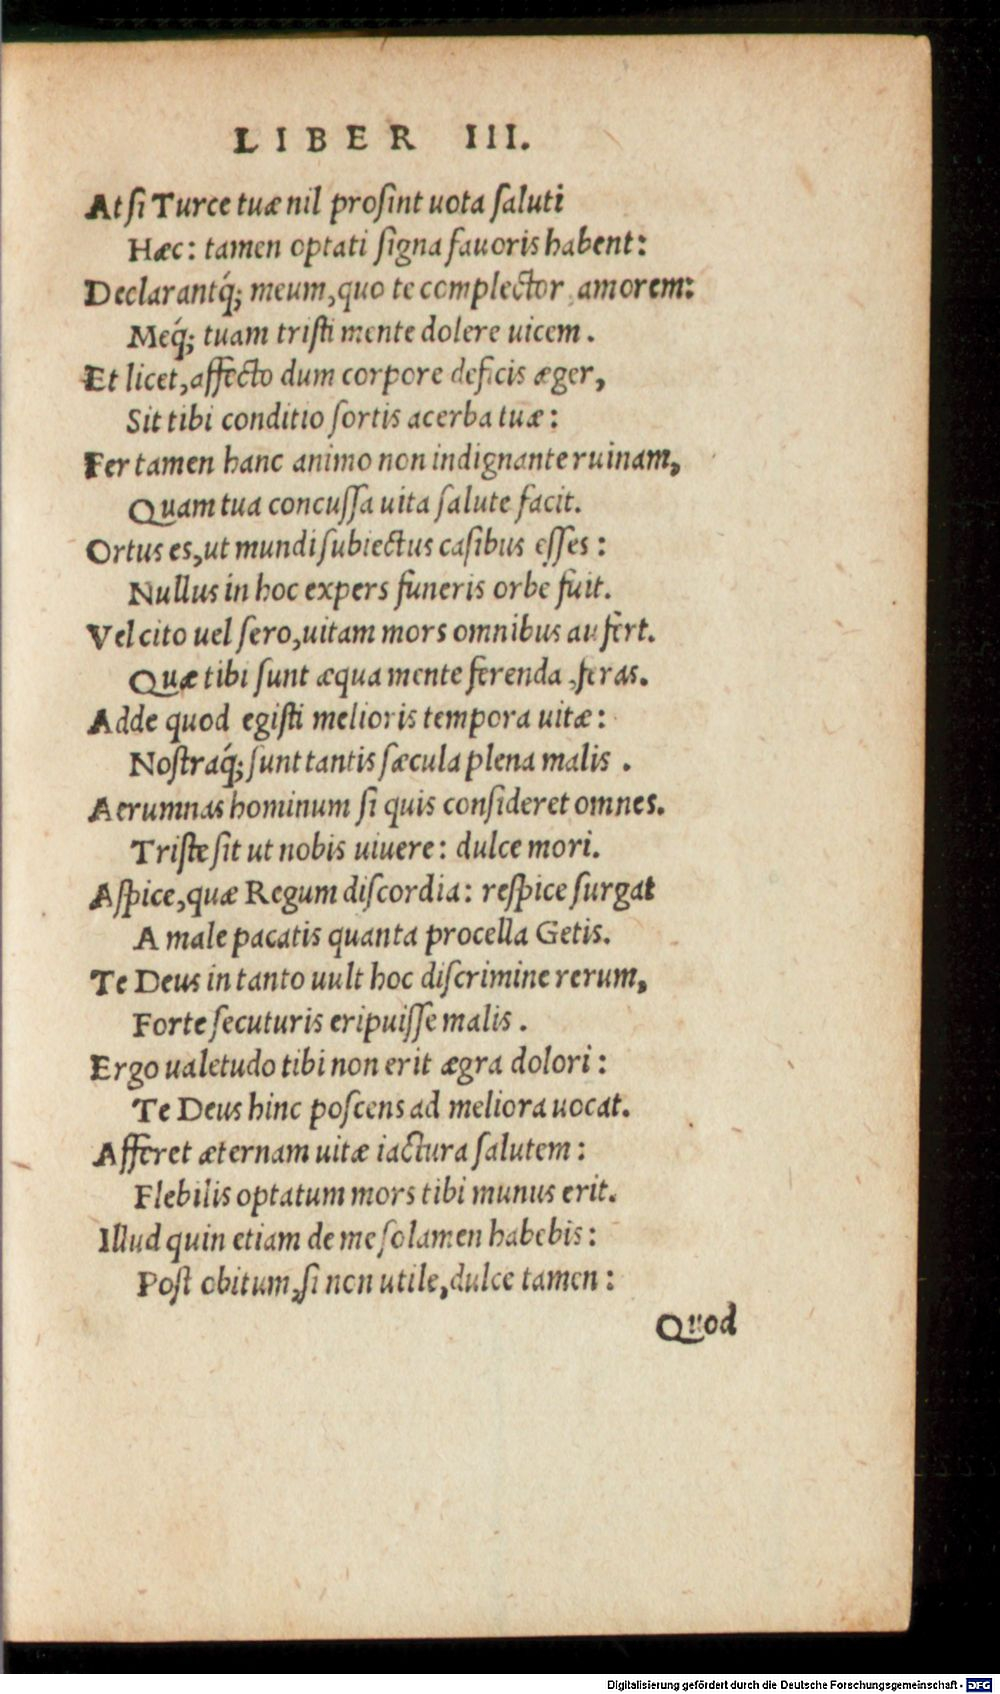 LIBER III.
At ſi Turce tuæ nil proſint uota ſaluti
Hæc: tamen optati ſigna fauoris habent:
Declarantq́; meum, quo te complector amorem:
Meq́; tuam triſti mente dolere uicem.
Et licet, affecto dum corpore deficis æger,
Sit tibi conditio ſortis acerba tuæ:
Fer tamen hanc animo non indignante ruinam,
Quam tua concuſſa uita ſalute facit.
Ortus es, ut mundi ſubiectus caſibus eſſes:
Nullus in hoc expers funeris orbe fuit.
Vel cito uel ſero, uitam mors omnibus aufert.
Quæ tibi ſunt æqua mente ferenda, feras.
Adde quod egiſti melioris tempora uitæ:
Noſtraq́; ſunt tantis ſæcula plena malis.
Aerumnas hominum ſi quis conſideret omnes.
Triſte ſit ut nobis uiuere: dulce mori.
Aſpice, quæ Regum diſcordia: reſpice ſurgat
A male pacatis quanta procella Getis.
Te Deus in tanto uult hoc diſcrimine rerum,
Forte ſecuturis eripuiſſe malis.
Ergo ualetudo tibi non erit ægra dolori:
Te Deus hinc poſcens ad meliora uocat.
Afferet æternam uitæ iactura ſalutem:
Flebilis optatum mors tibi munus erit.
Illud quin etiam de me ſolamen habebis:
Poſt obitum, ſi non utile, dulce tamen:
Quod
Digitalisierung gefördert durch die Deutsche Forschungsgemeinschaft - DFG